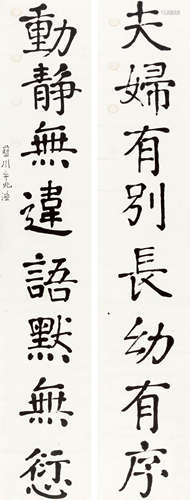 夫婦有別長幼有序
動靜無違語默無愆
藍川牛兆濂